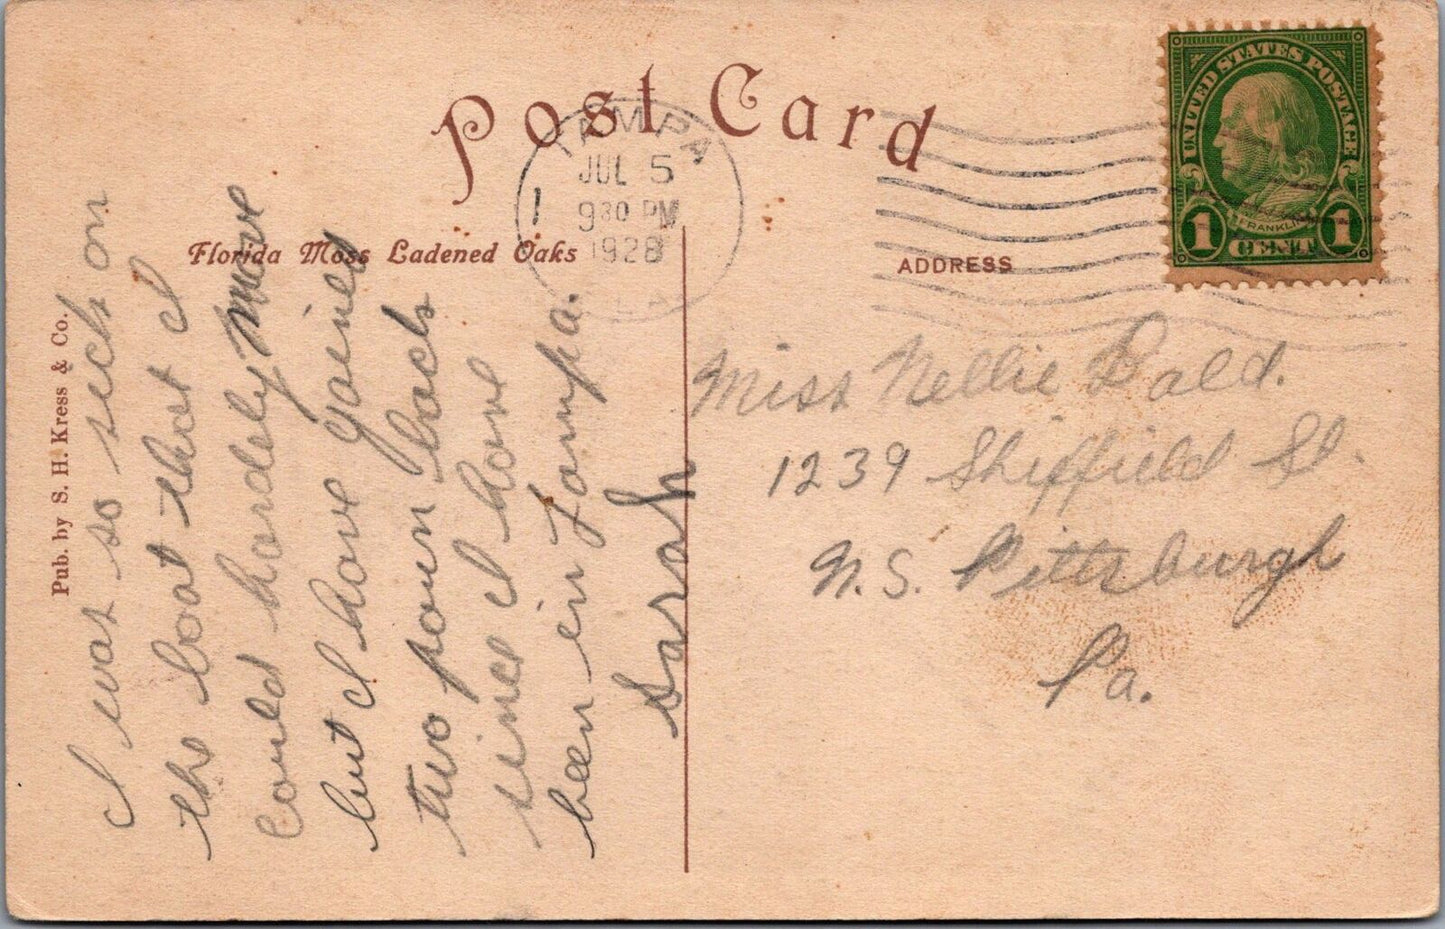 Post Card
TAMPA
JUL 5
1
9 30 PM
1928
FLA
UNITED STATES POSTAGE
FRANKLIN
1 CENT 1
Florida Moss Ladened Oaks
ADDRESS
Pub. by S. H. Kress & Co.
I was so sick on
the boat that I
could hardely move
but I have gained
two poun back
since I have
been in Tampa.
Sarah
Miss Nellie Bald.
1239 Shiffield St.
N.S. Pittsburgh
Pa.